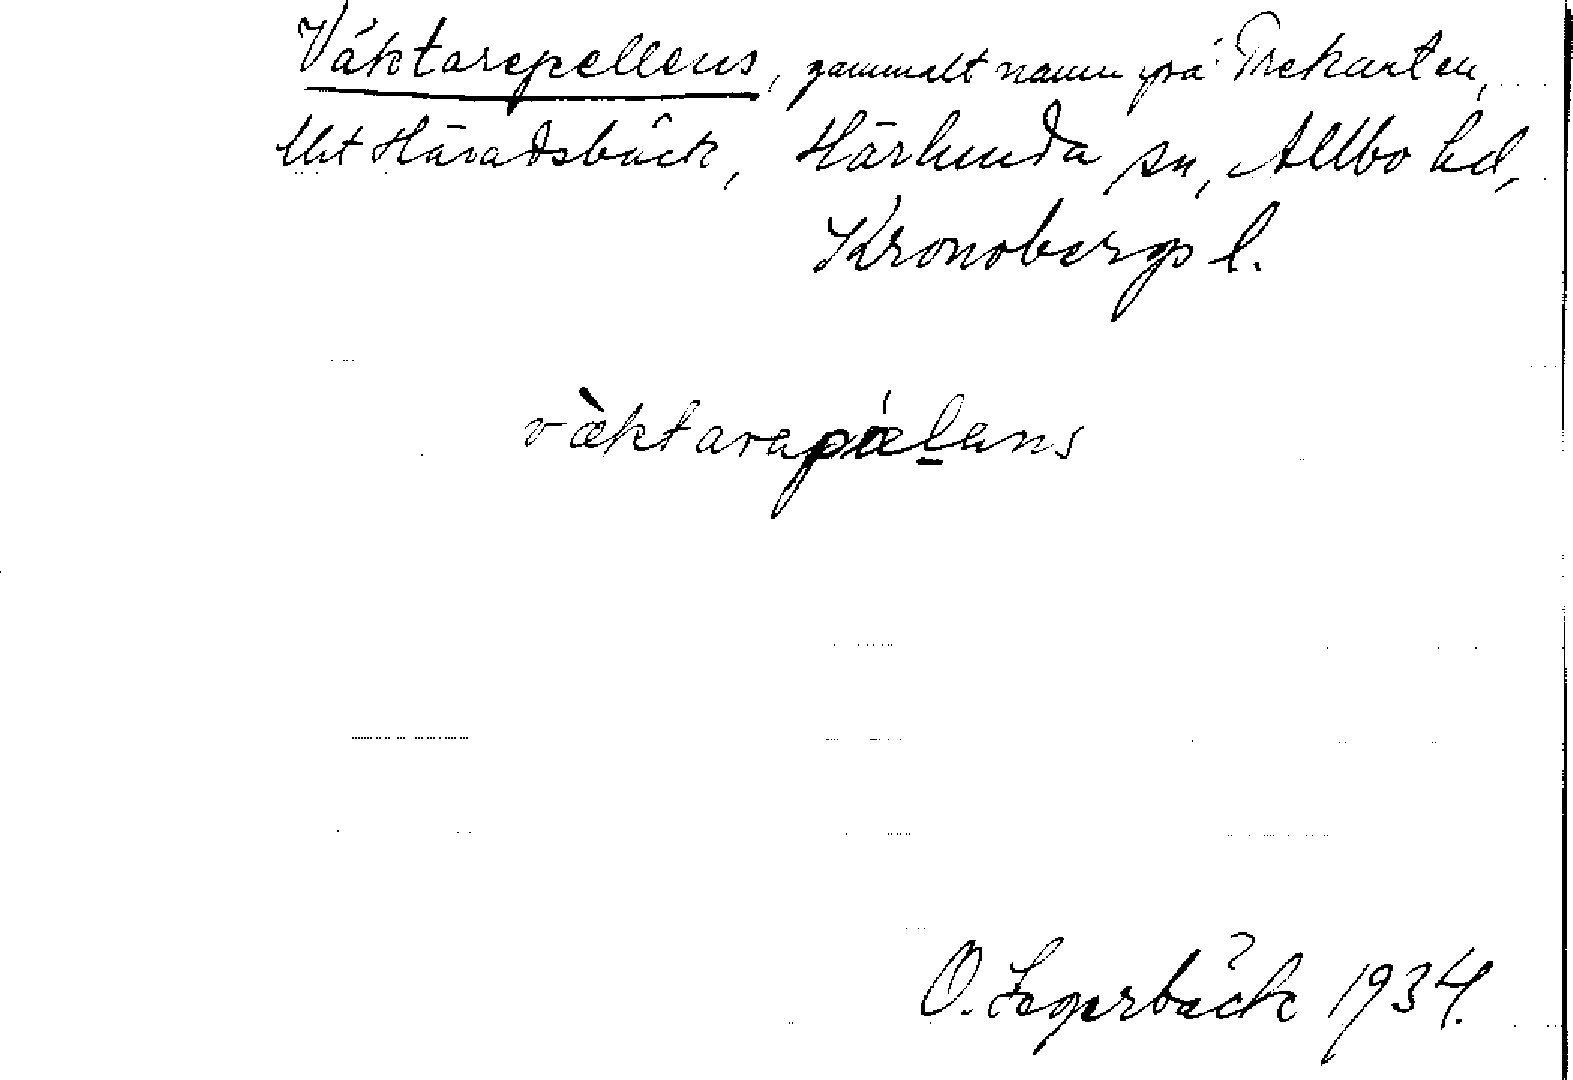 Väktarepellens, gammalt namn på Trekanten,
Uht Häradsbäck, Härlunda sn, Allbo hd,
Kronobergs l.
væ̀ktarapǽlans
O. Lagerbäck 1934.